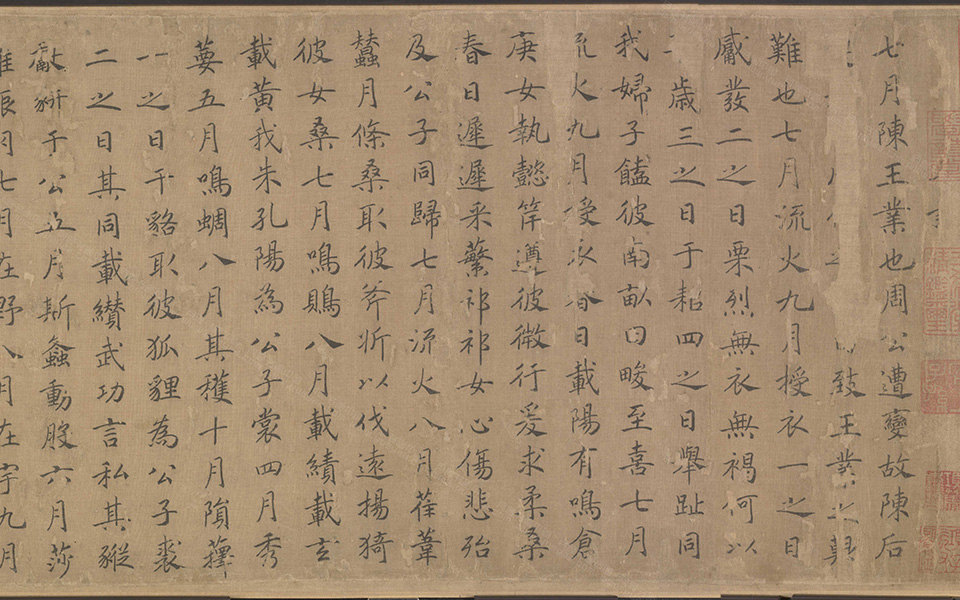 七月陳王業也周公遭變故陳后
致王業之艱
難也七月流火九月授衣一之日
觱發二之日栗烈無衣無褐何以
歲三之日于耜四之日舉趾同
我婦子饁彼南畝田畯至喜七月
流火九月授衣春日載陽有鳴倉
庚女執懿筐遵彼微行爰求柔桑
春日遲遲采蘩祁祁女心傷悲殆
及公子同歸七月流火八月萑葦
蠶月條桑取彼斧斨以伐遠揚猗
彼女桑七月鳴鵙八月載績載玄
載黃我朱孔陽為公子裳四月秀
葽五月鳴蜩八月其穫十月隕蘀
一之日于貉取彼狐貍為公子裘
二之日其同載纘武功言私其豵
獻豜于公五月斯螽動股六月莎
振羽七月在野八月在宇九月